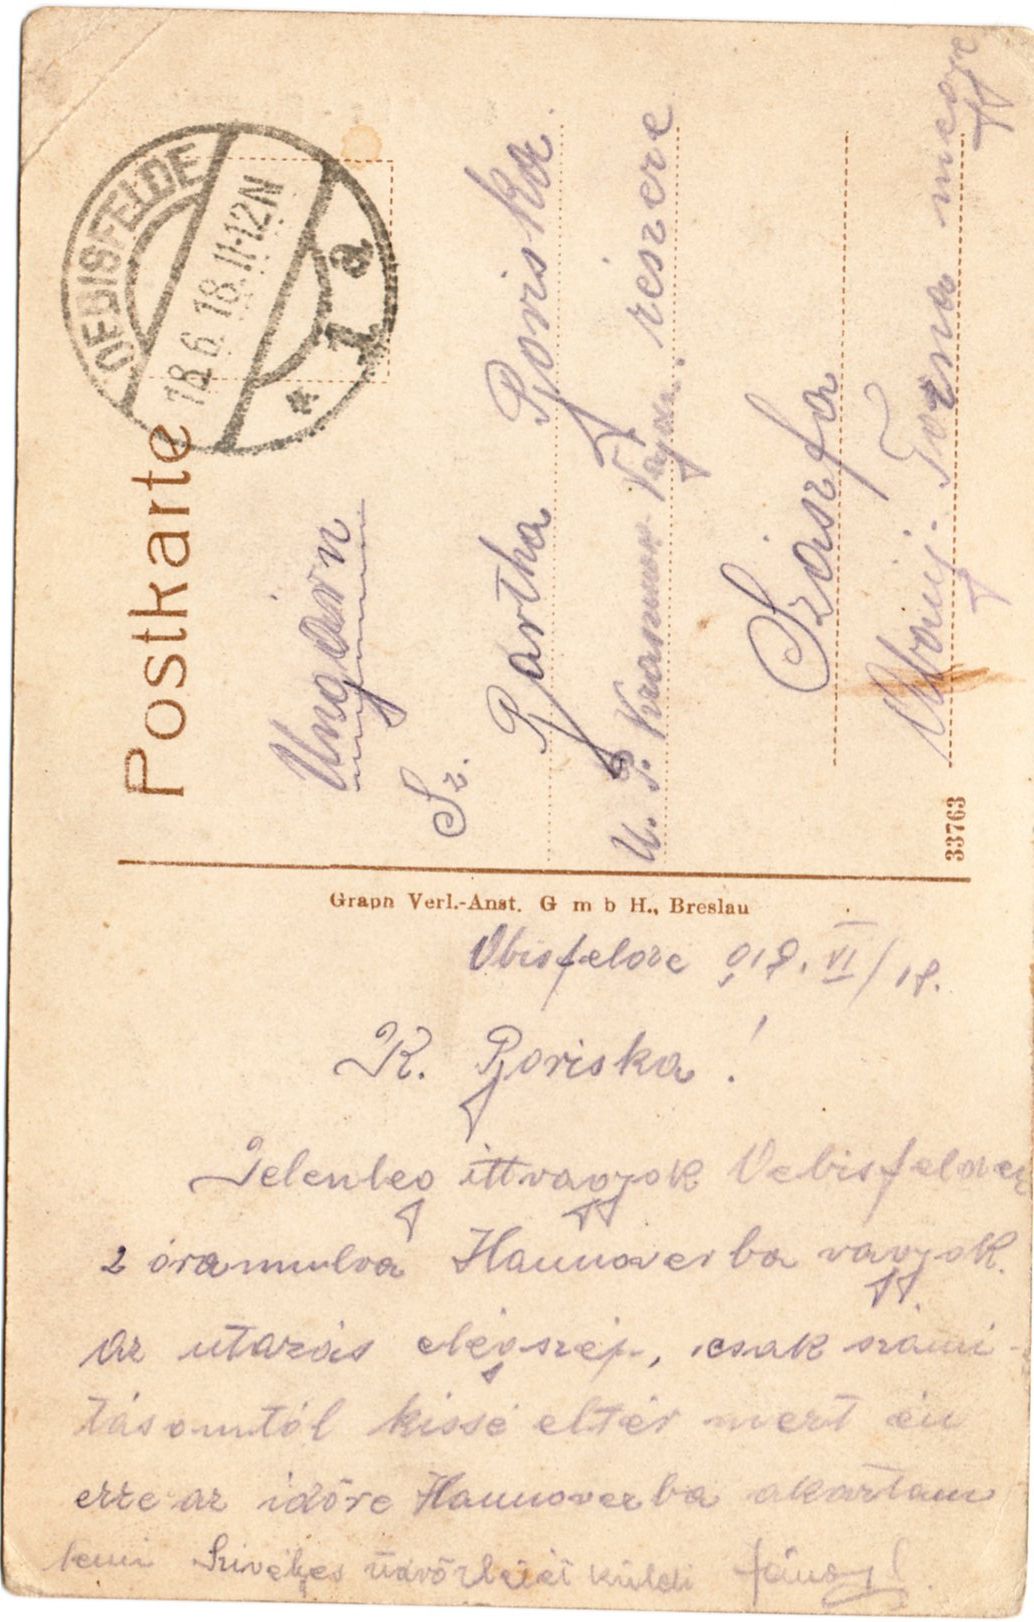 Postkarte
OEBISFELDE
18.6.18.11-12N
* 1a
Ungarn
Sz.
Bartha Boriska
u. P. Krasznok Vajda, részére
Szászfa
Abauj-Torna megye
33763
Graph Verl.-Anst. G m b H., Breslau
Obisfelde 918. VI/18.
K. Boriska!
Jelenleg ittvagyok Oebisfelden
2 óramulva Hannoverba vagyok.
Az utazás elégszép, csak számi-
tásomtól kissé eltér mert én
erre az időre Hannoverba akartam
lenni Szivélyes üdvözletét küldi